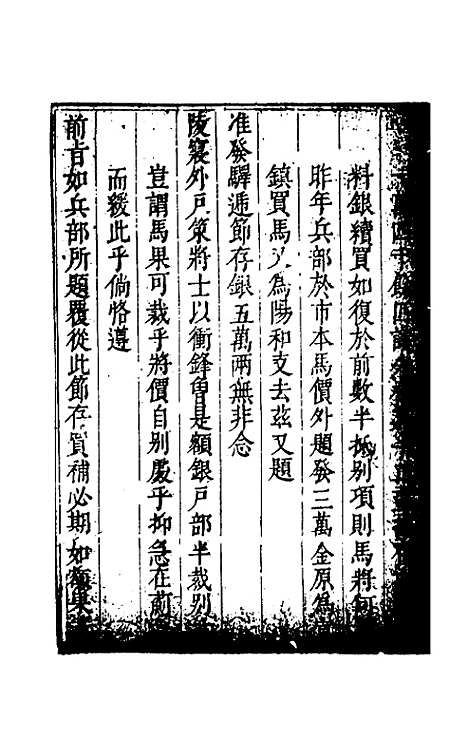 料銀續買如復於前數半抵別項則馬將何
昨年兵部於市本馬價外題發三萬金原為
鎮買馬又為陽和支去茲又題
准發驛遞節存銀五萬兩無非念
陵寢外戶策將士以衝鋒曾是額銀戶部半裁別
豈謂馬果可裁乎將價自別處乎抑急在薊
而緩此乎倘恪遵
前旨如兵部所題覆從此節存買補必期如額果